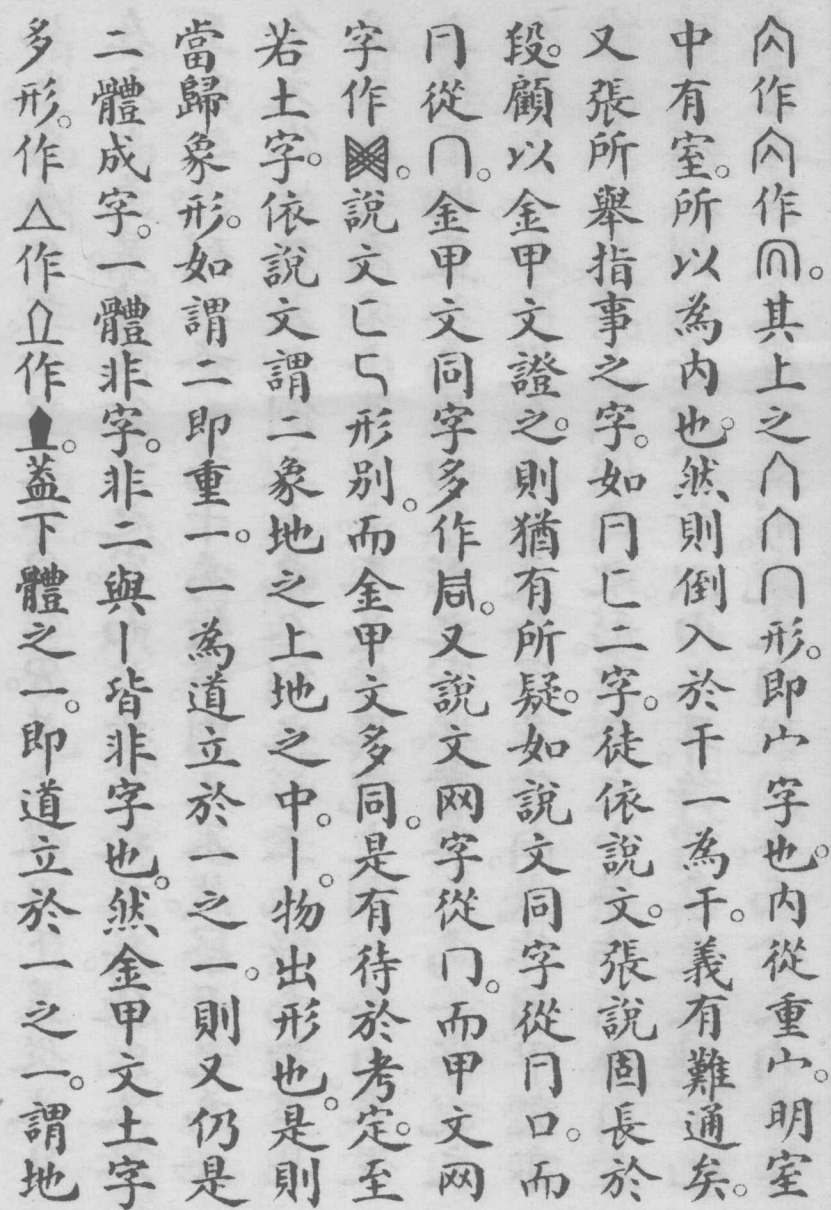 作作。其上之形。即宀字也。内從重宀。明室
中有室。所以為内也。然則倒入於干一為干。義有難通矣。
又張所舉指事之字。如冃匸二字。徒依說文。張說固長於
段。顧以金甲文證之。則猶有所疑。如說文同字從冃口。而
冃從冂。金甲文同字多作。又說文网字從冂。而甲文网
字作。說文匸匚形別。而金甲文多同。是有待於考定。至
若土字。依說文謂二象地之上地之中。丨。物出形也。是則
當歸象形。如謂二即重一。一為道立於一之一。則又仍是
二體成字。一體非字。非二與丨皆非字也。然金甲文土字
多形。作作作。蓋下體之一。即道立於一之一。謂地